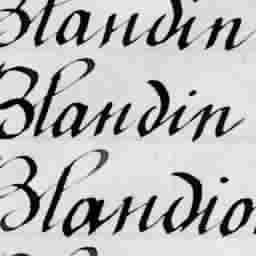 Blandin
Blandin
Blandio